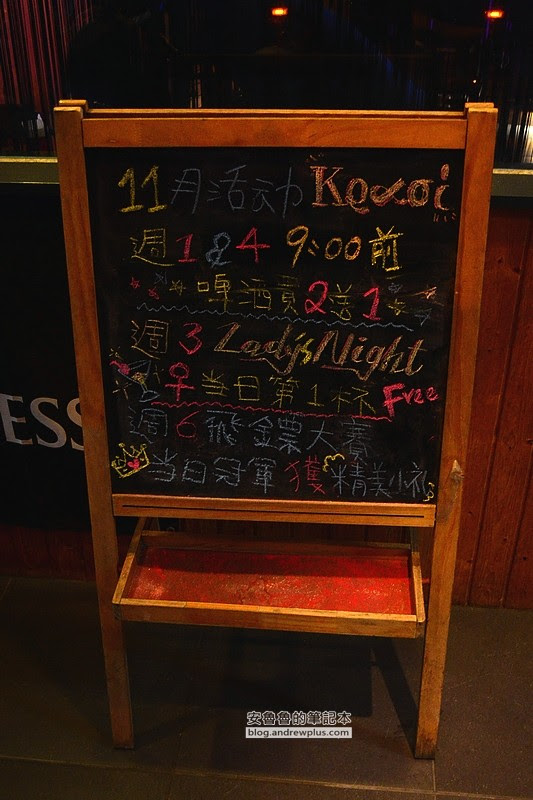 11月活动 Koxoi
週1&4 9:00前
啤酒買2送1
週3 Lady's Night
♀當日第1杯Free
週6飛鏢大賽
當日冠軍獲精美小礼
ESS
安魯魯的筆記本
blog.andrewplus.com